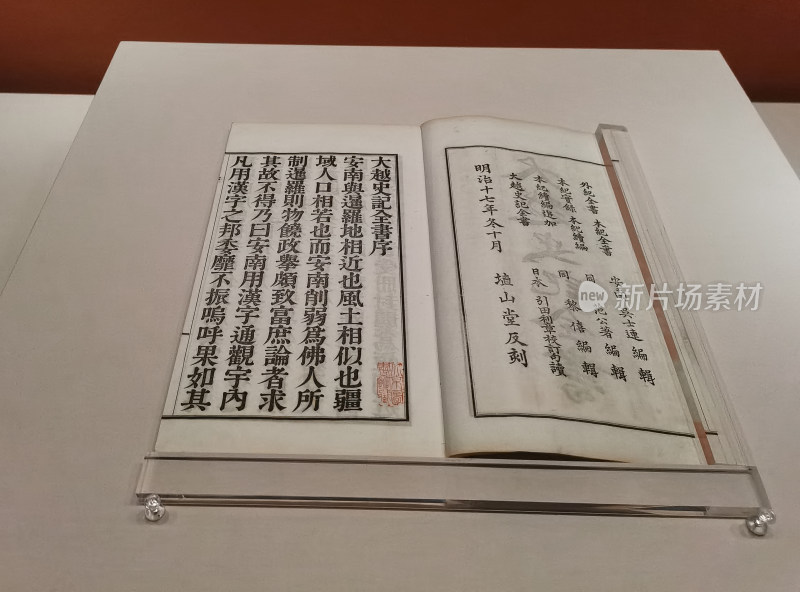 外紀全書 本紀全書 安 吳士連 編輯
本紀實錄 本紀續編 同 公著 編輯
本紀續編追加 同 黎僖 編輯
大越史記全書 日本 引田利章校訂句讀
明治十七年冬十月 埴山堂反刻
大越史記全書序
安南與暹羅地相近也風土相似也疆
域人口相若也而安南削弱爲佛人所
制暹羅則物饒政舉頗致富庶論者求
其故不得乃曰安南用漢字通觀宇內
凡用漢字之邦委靡不振嗚呼果如其
new 新片场